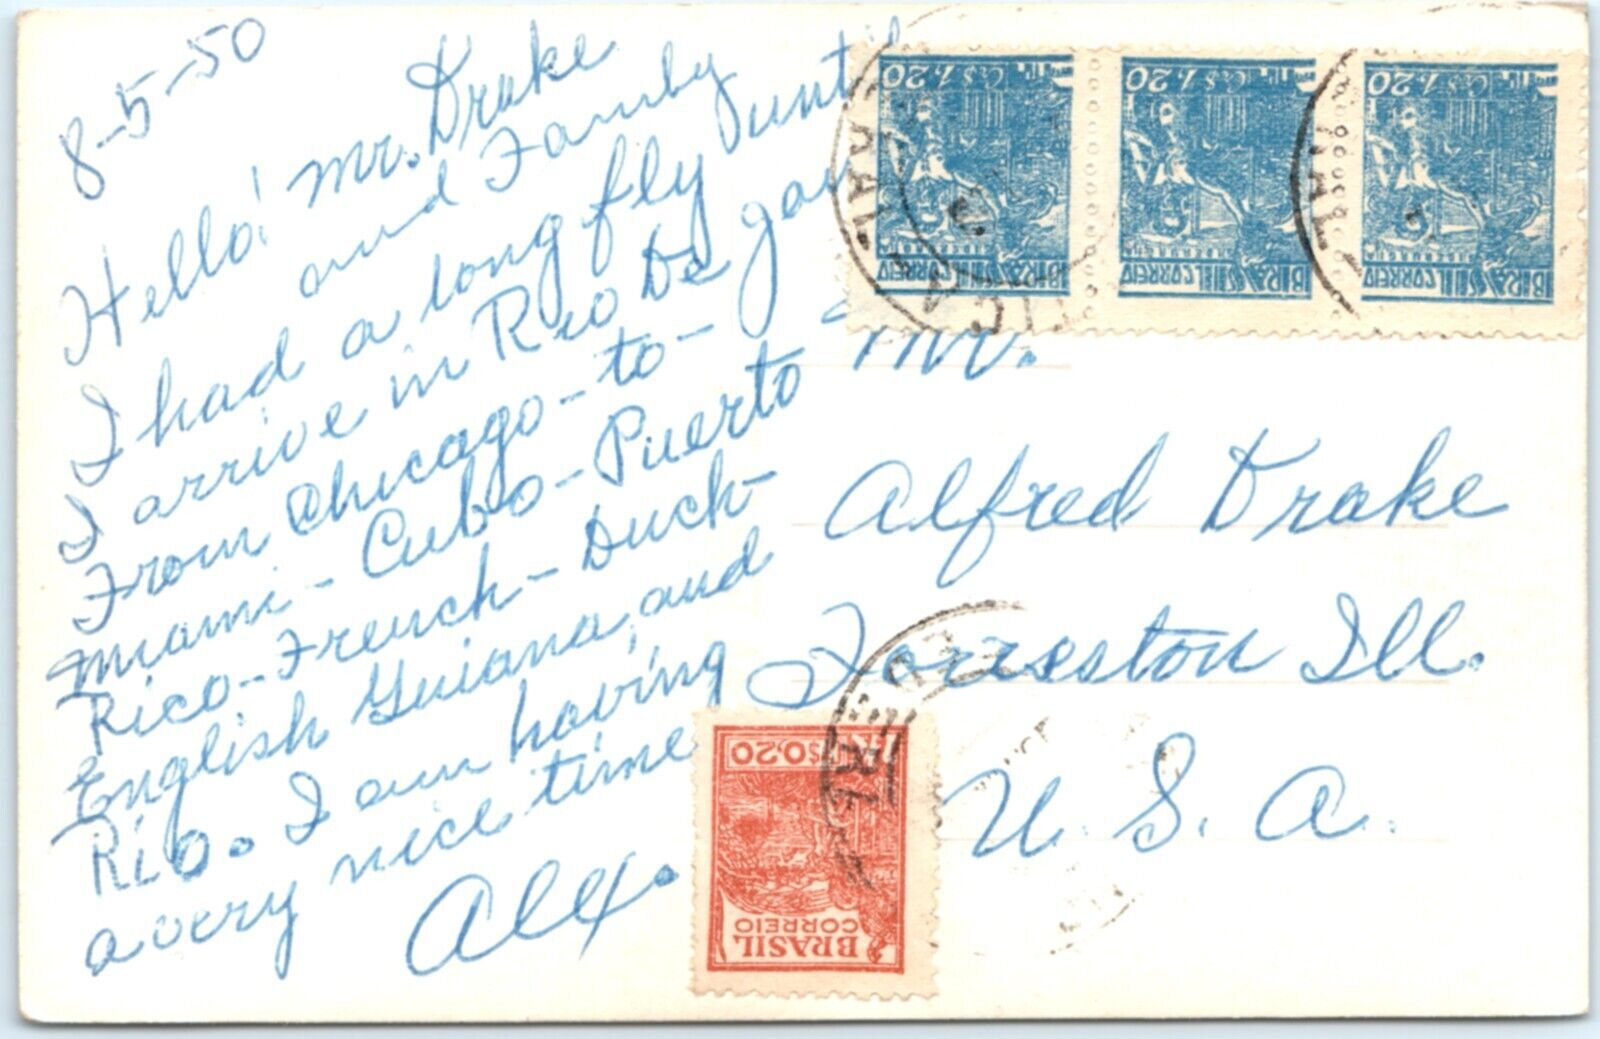 8-5-50
Hello! Mr. Drake
and Family
I had a long fly until
I arrive in Rio De Jan
From Chicago-to-
Miami-Cubo-Puerto
Rico-French-Duch-
English Guiana, and
Rio. I am having
a very nice time
Alex.
Mr.
Alfred Drake
Forreston Ill.
U. S. A.
Cr$ 1,20
BRASIL CORREIO
Cr$ 1,20
BRASIL CORREIO
Cr$ 1,20
BRASIL CORREIO
$0,20
BRASIL
CORREIO